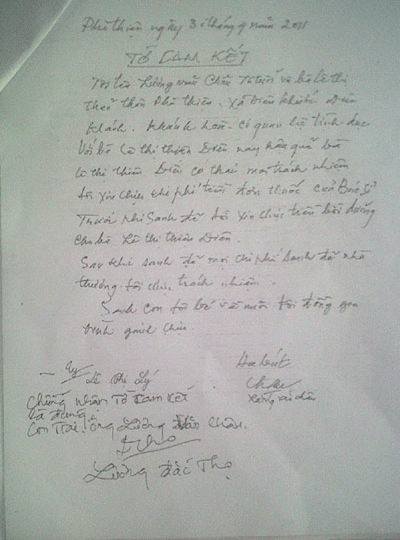 Phú thiện ngày 3 tháng 9 năm 2011
TỜ CAM KẾT
Tôi tên Lương văn Châu Tuổi và bà lê thị
thôn Phú thiện. Xã Diên Diên
Khánh. Khánh hoà. có quan hệ tình dục
Với bà lê thị thiên Diên nay hậu quả bà
lê thị thiên Diên có thai mọi trách nhiệm
tôi xin chịu chi phí tiền đơn thuốc của Bác sĩ
Trước khi Sanh đẻ tôi xin chịu tiền bồi dưỡng
cho bà lê thị thiên Diên.
Sau khi sanh đẻ mọi chi phí sanh đẻ nhà
thương tôi chịu trách nhiệm.
Sanh con tôi về nuôi tôi đồng
chịu.
Lê Thị Lý
Chứng Nhận Tờ Cam Kết
là đúng.
Con Trai ông Lương Văn Châu.
Thọ
Lương Đắc Thọ
Châu
Lương văn Châu